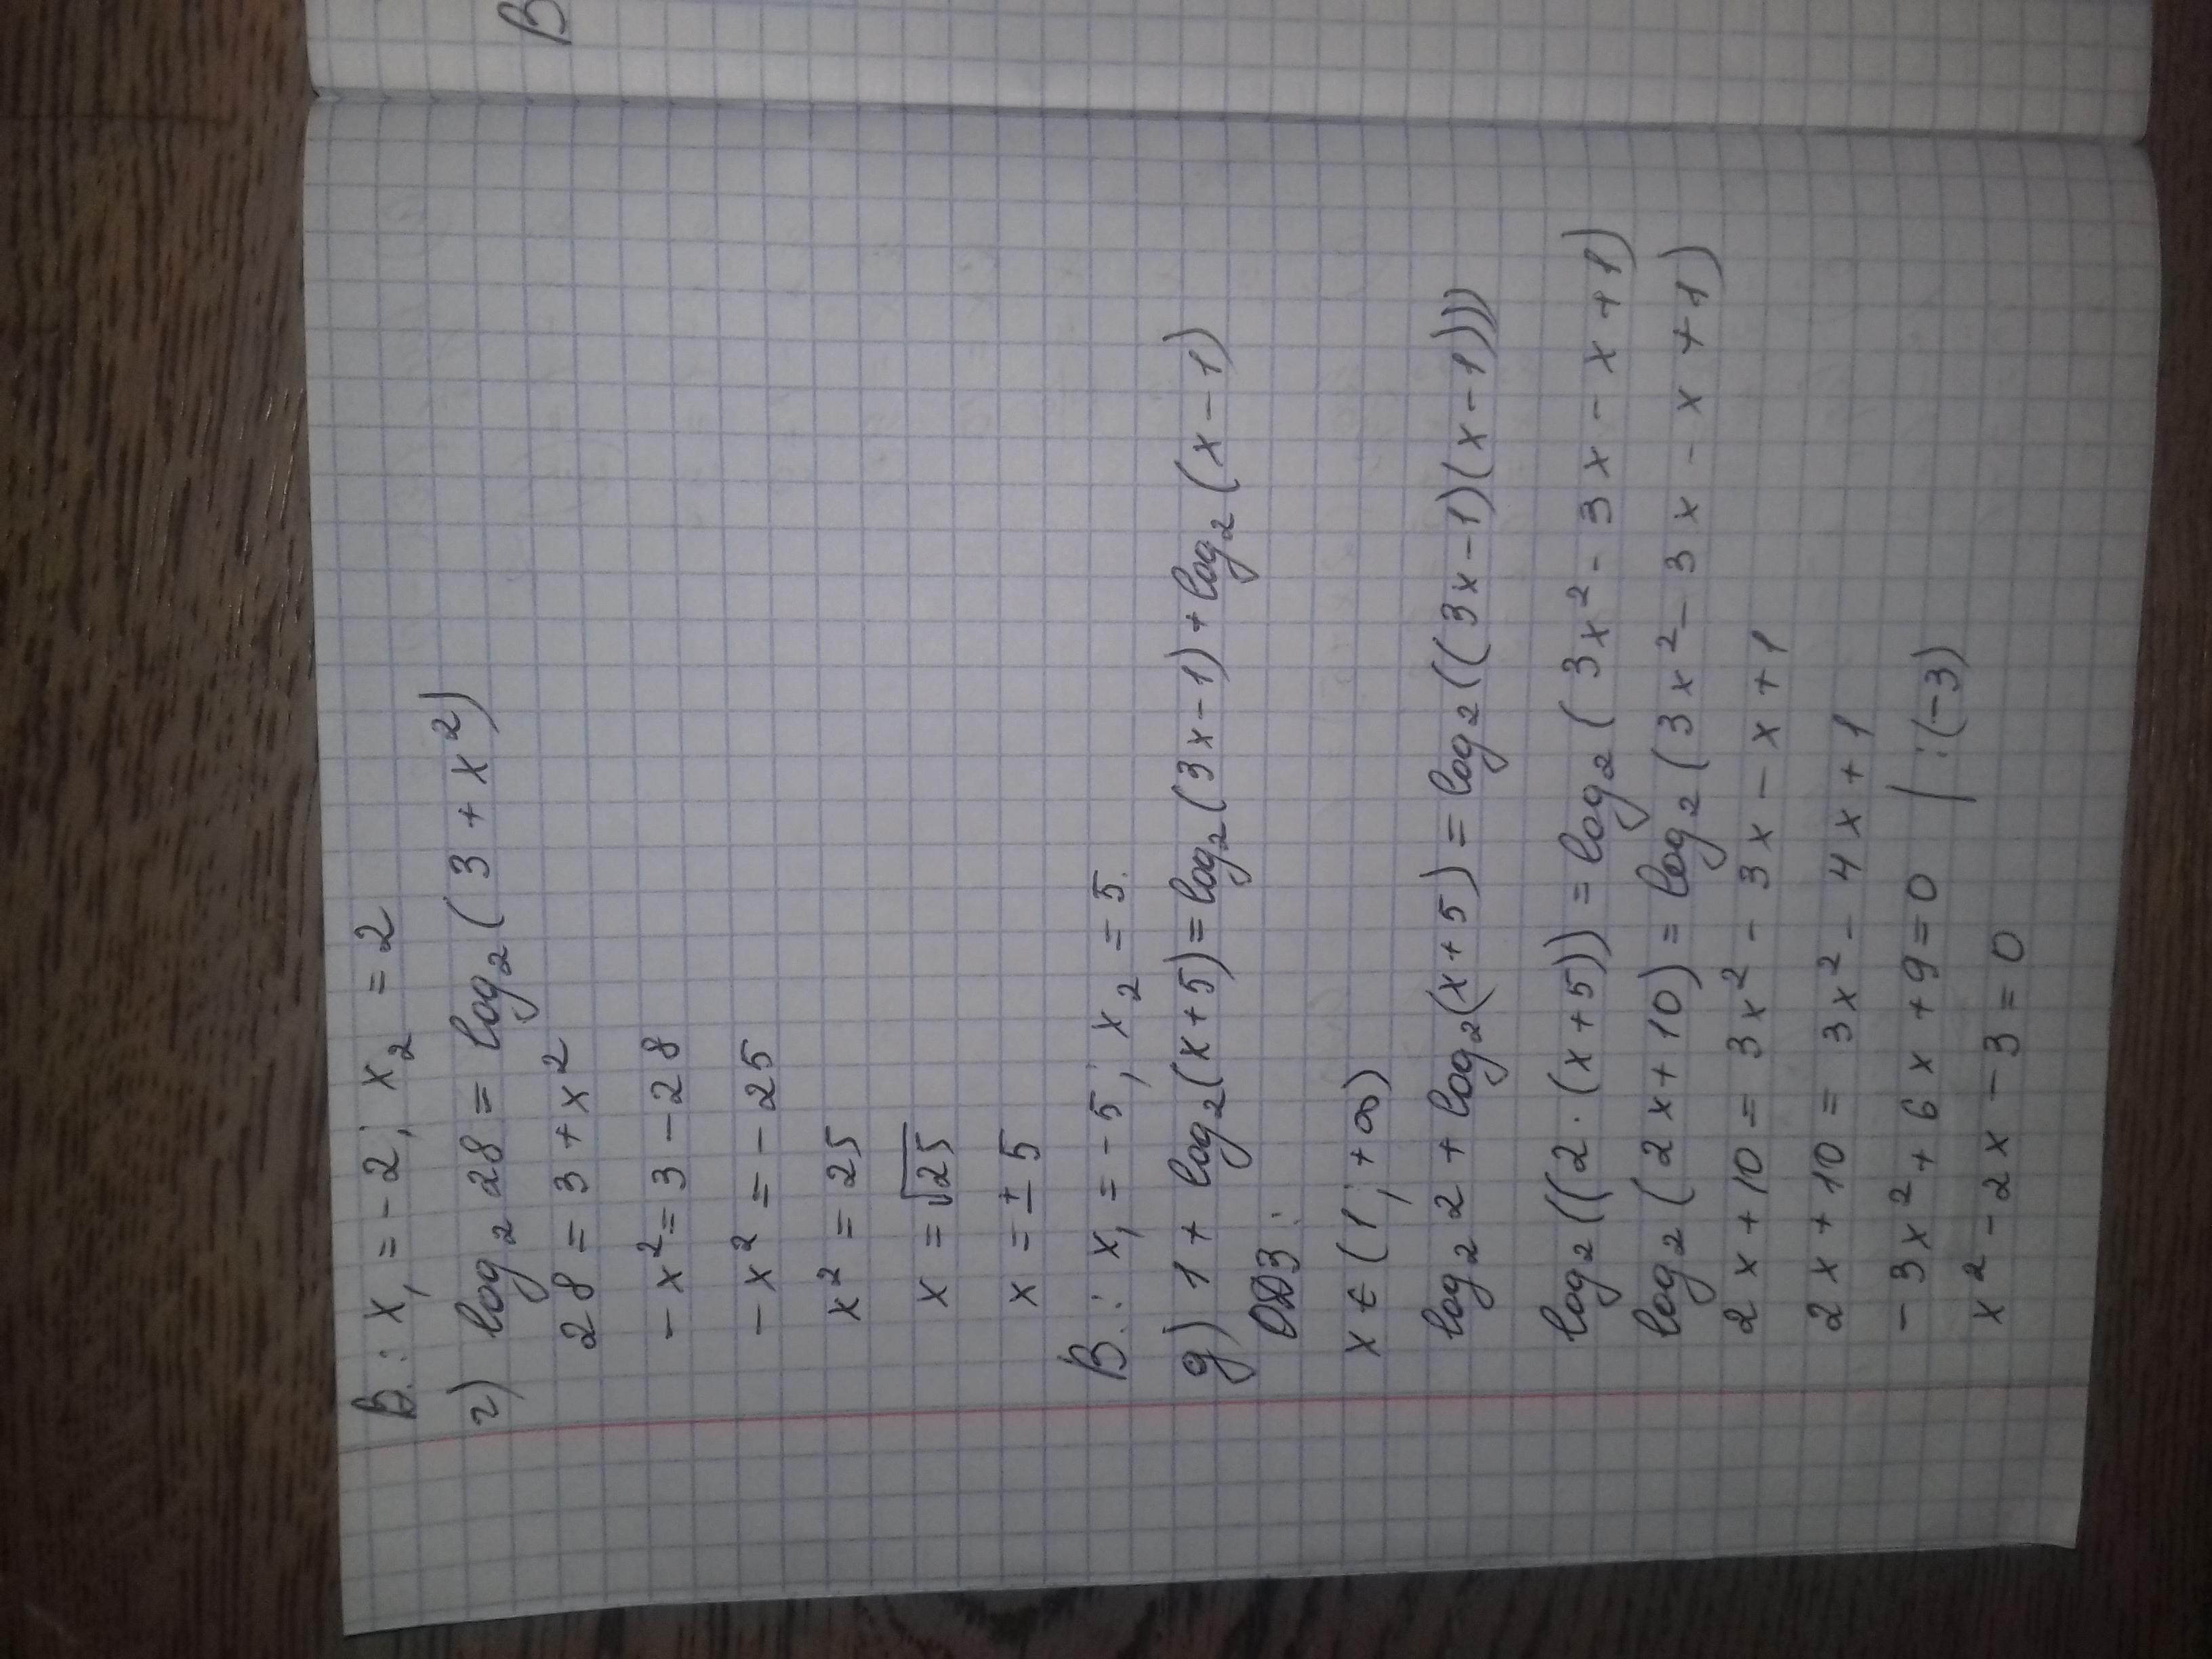 В.: x₁ = -2; x₂ = 2
г) log₂ 28 = log₂ (3 + x²)
28 = 3 + x²
- x² = 3 - 28
- x² = - 25
x² = 25
x = √25
x = ± 5
В.: x₁ = - 5; x₂ = 5.
g) 1 + log₂(x + 5) = log₂(3x - 1) + log₂(x - 1)
ОДЗ:
x ∈ (1; +∞)
log₂ 2 + log₂(x + 5) = log₂((3x - 1)(x - 1)))
log₂((2 · (x + 5)) = log₂(3x² - 3x - x + 1)
log₂(2x + 10) = log₂(3x² - 3x - x + 1)
2x + 10 = 3x² - 3x - x + 1
2x + 10 = 3x² - 4x + 1
- 3x² + 6x + 9 = 0 | :(-3)
x² - 2x - 3 = 0
В